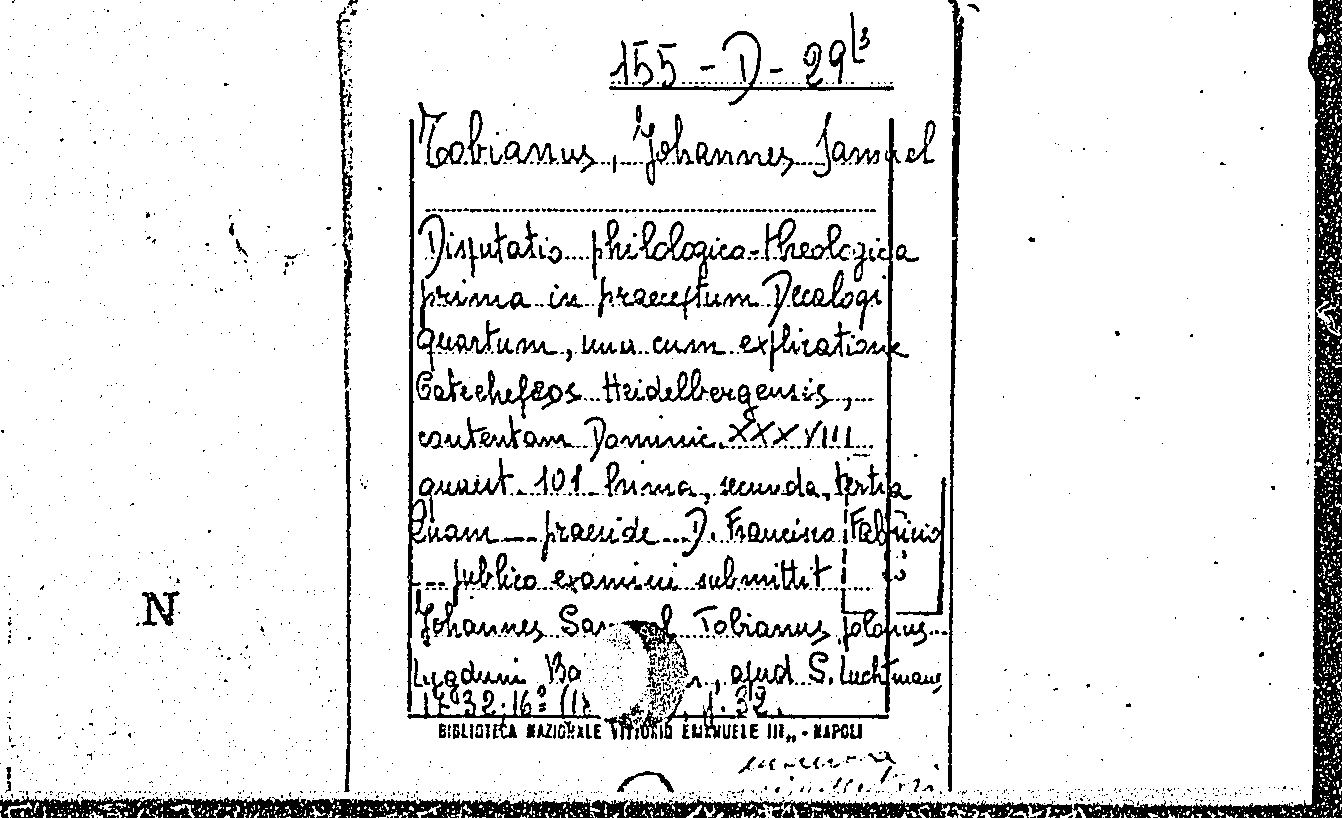 155 - D - 29
Tobianus, Johannes Samuel
Disputatio philologica-theologica
prima in praeceptum Decalogi
quartum, una cum explicatione
Catecheseos Heidelbergensis,
contentam Dominic. XXXVIII
quaest. 101. Prima, secunda, tertia
Quam --- praeside --- D. Francisco Fabricio
--- publico examini submittit
Johannes Tobianus, Polonus --
Lugduni Ba , apud S. Luchtmans
1732. 16° p. 32.
BIBLIOTECA NAZIONALE VITTORIO EMANUELE III,, - NAPOLI
N